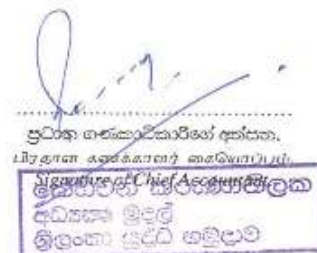 ප්‍රධාන ගණකාධිකාරීගේ අත්සන.
பிரதான கணக்காளர் கையொப்பம்.
Signature of Chief Accountant
අධ්‍යක්ෂ මුදල්
ශ්‍රී ලංකා යුද්ධ හමුදාව